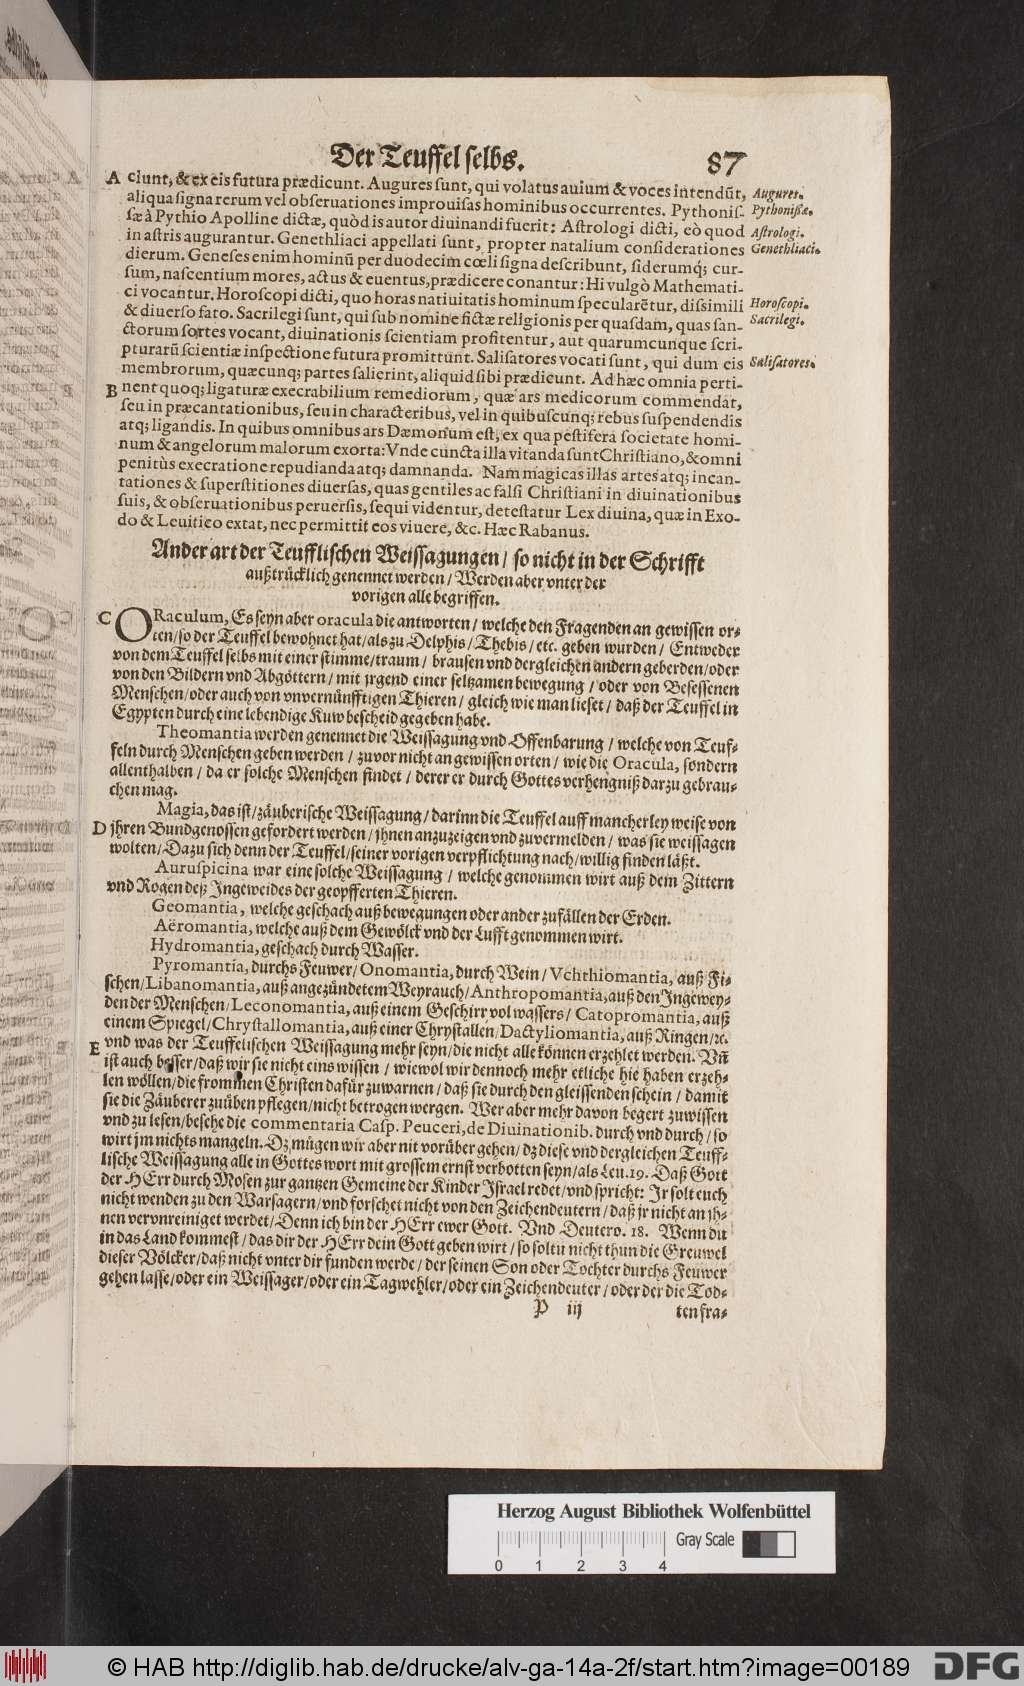 Der Teuffel selbs. 87
A ciunt, & ex eis futura prædicunt. Augures sunt, qui volatus auium & voces intendūt, Augures.
aliqua signa rerum vel obseruationes improuisas hominibus occurrentes. Pythonis- Pythonissæ.
sæ à Pythio Apolline dictæ, quòd is autor diuinandi fuerit: Astrologi dicti, eò quod Astrologi.
in astris augurantur. Genethliaci appellati sunt, propter natalium considerationes Genethliaci.
dierum. Geneses enim hominū per duodecim cœli signa describunt, siderumq́; cur-
sum, nascentium mores, actus & euentus, prædicere conantur: Hi vulgò Mathemati-
ci vocantur. Horoscopi dicti, quo horas natiuitatis hominum specularētur, dissimili Horoscopi.
& diuerso fato. Sacrilegi sunt, qui sub nomine fictæ religionis per quasdam, quas san- Sacrilegi.
ctorum sortes vocant, diuinationis scientiam profitentur, aut quarumcunque scri-
pturarū scientiæ inspectione futura promittunt. Salisatores vocati sunt, qui dum eis Salisatores.
membrorum, quæcunq; partes salierint, aliquid sibi prædicunt. Ad hæc omnia perti-
B nent quoq; ligaturæ execrabilium remediorum, quæ ars medicorum commendat,
seu in præcantationibus, seu in characteribus, vel in quibuscunq; rebus suspendendis
atq; ligandis. In quibus omnibus ars Dæmonum est, ex qua pestifera societate homi-
num & angelorum malorum exorta: Vnde cuncta illa vitanda sunt Christiano, & omni
penitùs execratione repudianda atq; damnanda. Nam magicas illas artes atq; incan-
tationes & superstitiones diuersas, quas gentiles ac falsi Christiani in diuinationibus
suis, & obseruationibus peruersis, sequi videntur, detestatur Lex diuina, quæ in Exo-
do & Leuitico extat, nec permittit eos viuere, &c. Hæc Rabanus.
Ander art der Teufflischen Weissagungen / so nicht in der Schrifft
außtrücklich genennet werden / Werden aber vnter der
vorigen alle begriffen.
C ORaculum, Es seyn aber oracula die antworten / welche den Fragenden an gewissen or-
ten / so der Teuffel bewohnet hat / als zu Delphis / Thebis / etc. geben wurden / Entweder
von dem Teuffel selbs mit einer stimme / traum / brausen vnd dergleichen andern geberden / oder
von den Bildern vnd Abgöttern / mit jrgend einer seltzamen bewegung / oder von Besessenen
Menschen / oder auch von vnvernünfftigen Thieren / gleich wie man lieset / daß der Teuffel in
Egypten durch eine lebendige Kuw bescheid gegeben habe.
Theomantia werden genennet die Weissagung vnd Offenbarung / welche von Teuf-
feln durch Menschen geben werden / zuvor nicht an gewissen orten / wie die Oracula, sondern
allenthalben / da er solche Menschen findet / derer er durch Gottes verhengniß darzu gebrau-
chen mag.
Magia, das ist / zäuberische Weissagung / darinn die Teuffel auff mancherley weise von
D jhren Bundgenossen gefordert werden / jhnen anzuzeigen vnd zuvermelden / was sie weissagen
wolten / Dazu sich denn der Teuffel / seiner vorigen verpflichtung nach / willig finden läßt.
Auruspicina war eine solche Weissagung / welche genommen wirt auß dem Zittern
vnd Rogen deß Ingeweides der geopfferten Thieren.
Geomantia, welche geschach auß bewegungen oder ander zufällen der Erden.
Aëromantia, welche auß dem Gewölck vnd der Lufft genommen wirt.
Hydromantia, geschach durch Wasser.
Pyromantia, durchs Feuwer / Onomantia, durch Wein / Vchthiomantia, auß Fi-
schen / Libanomantia, auß angezündetem Weyrauch / Anthropomantia, auß den Ingewey-
den der Menschen / Leconomantia, auß einem Geschirr vol wassers / Catopromantia, auß
einem Spiegel / Chrystallomantia, auß einer Chrystallen / Dactyliomantia, auß Ringen / ꝛc.
E vnd was der Teuffelischen Weissagung mehr seyn / die nicht alle können erzehlet werden. Vñ
ist auch besser / daß wir sie nicht eins wissen / wiewol wir dennoch mehr etliche hie haben erzeh-
len wöllen / die frommen Christen dafür zuwarnen / daß sie durch den gleissenden schein / damit
sie die Zäuberer zuüben pflegen / nicht betrogen wergen. Wer aber mehr davon begert zuwissen
vnd zu lesen / besehe die commentaria Casp. Peuceri, de Diuinationib. durch vnd durch / so
wirt jm nichts mangeln. Dz mügen wir aber nit vorüber gehen / dz diese vnd dergleichen Teuff-
lische Weissagung alle in Gottes wort mit grossem ernst verbotten seyn / als Leu. 19. Daß Gott
der HErr durch Mosen zur gantzen Gemeine der Kinder Israel redet / vnd spricht: Ir solt euch
nicht wenden zu den Warsagern / vnd forschet nicht von den Zeichendeutern / daß jr nicht an jh-
nen vervnreiniget werdet / Denn ich bin der HErr ewer Gott. Vnd Deutero. 18. Wenn du
in das Land kommest / das dir der HErr dein Gott geben wirt / so soltu nicht thun die Greuwel
dieser Völcker / daß nicht vnter dir funden werde / der seinen Son oder Tochter durchs Feuwer
gehen lasse / oder ein Weissager / oder ein Tagwehler / oder ein Zeichendeuter / oder der die Tod-
P iij ten fra-
Herzog August Bibliothek Wolfenbüttel
Gray Scale
0 1 2 3 4
© HAB http://diglib.hab.de/drucke/alv-ga-14a-2f/start.htm?image=00189 DFG